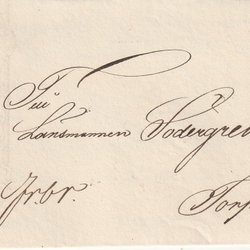 Till
Länsmannen Södergre
Frbr.
Torp